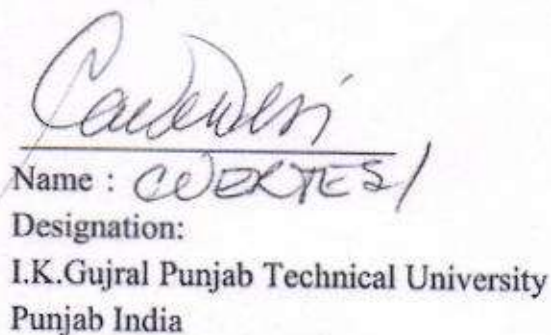 Name : CWERTESI
Designation:
I.K.Gujral Punjab Technical University
Punjab India